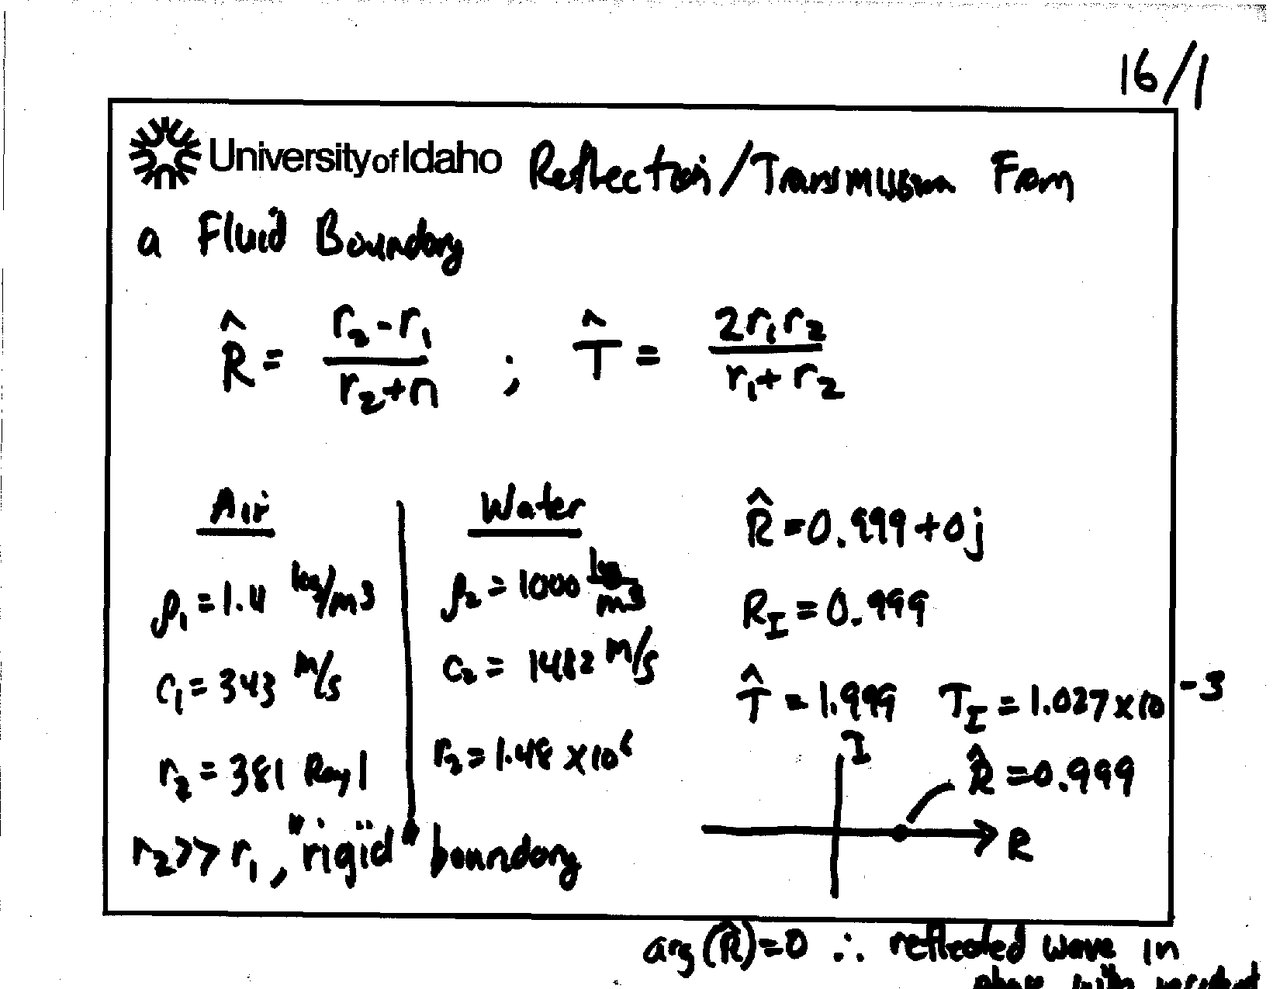 16/1
University of Idaho Reflection/Transmission From
a Fluid Boundary
R̂ = (r₂ - r₁)/(r₂ + r₁) ; T̂ = 2r₁r₂/(r₁ + r₂)
Air
ρ₁ = 1.11 kg/m3
c₁ = 343 m/s
r₂ = 381 Rayl
Water
ρ₂ = 1000 kg/m3
c₂ = 1482 m/s
r₂ = 1.48 x 10⁶
r₂ >> r₁, "rigid" boundary
R̂ = 0.999 + 0j
R_I = 0.999
T̂ = 1.999 T_I = 1.027 x 10⁻³
I
R̂ = 0.999
R
arg(R̂) = 0 ∴ reflected wave in
phase with